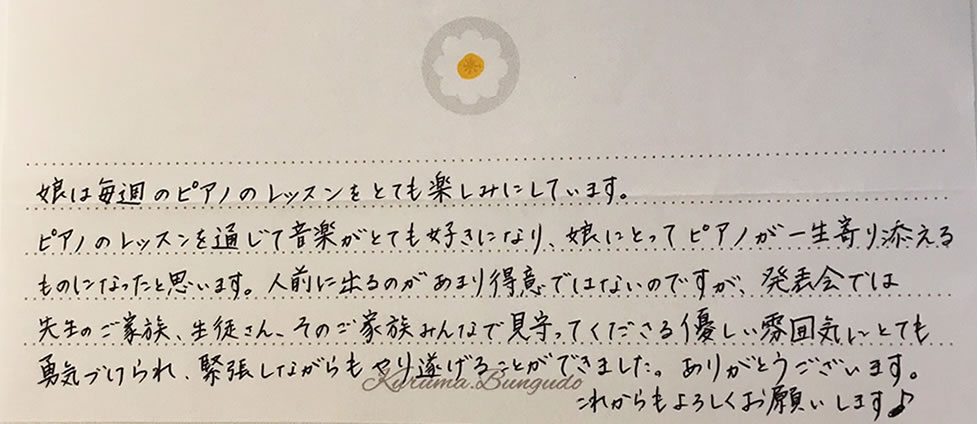 娘は毎週のピアノのレッスンをとても楽しみにしています。
ピアノのレッスンを通じて音楽がとても好きになり、娘にとってピアノが一生寄り添える
ものになったと思います。人前に出るのがあまり得意ではないのですが、発表会では
先生のご家族、生徒さん、そのご家族みんなで見守ってくださる優しい雰囲気にとても
勇気づけられ、緊張しながらもやり遂げることができました。ありがとうございます。
Kuruma.Bungudo
これからもよろしくお願いします♪